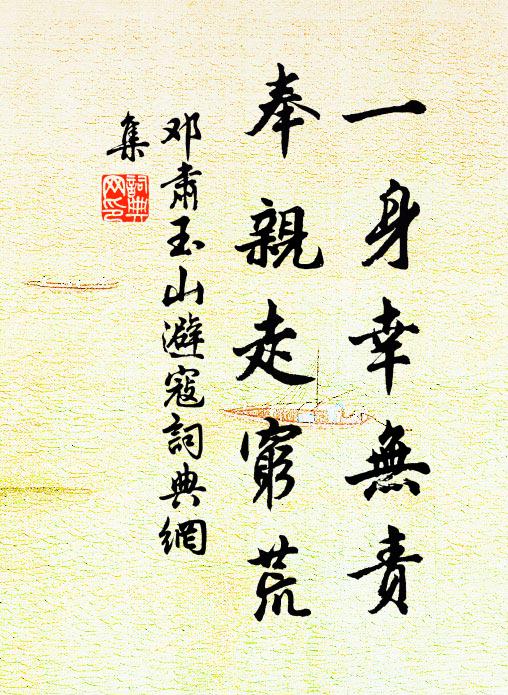 一身幸無責
奉親走窮荒
邓肅玉山避寇詞典網
集
詞典
网印